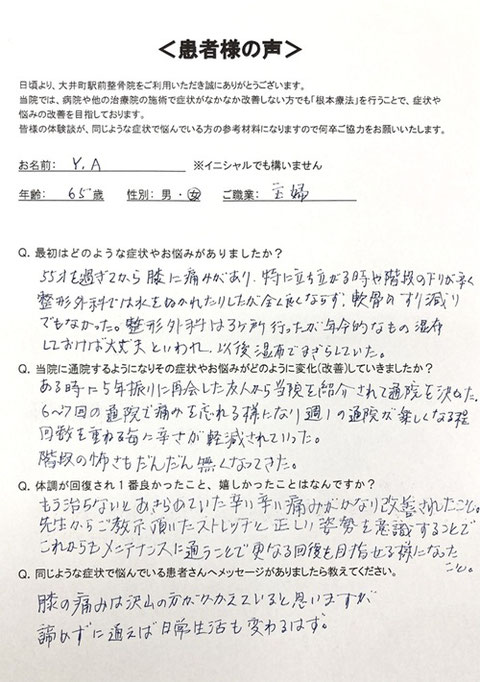 ＜患者様の声＞
日頃より、大井町駅前整骨院をご利用いただき誠にありがとうございます。
当院では、病院や他の治療院の施術で症状がなかなか改善しない方でも「根本療法」を行うことで、症状や
悩みの改善を目指しております。
皆様の体験談が、同じような症状で悩んでいる方の参考材料になりますので何卒ご協力をお願いいたします。
お名前： Y.A ※イニシャルでも構いません
年齢： 65歳 性別：男・女 ご職業： 主婦
Q. 最初はどのような症状やお悩みがありましたか？
55才を過ぎてから膝に痛みがあり、特に立ち上がる時や階段の下りが辛く
整形外科では水をぬかれたりしたが全く良くならず、軟骨のすり減り
でもなかった。整形外科は3ヶ所行ったが年令的なもの湿布
しておけば大丈夫といわれ、以後湿布でまぎらしていた。
Q. 当院に通院するようになりその症状やお悩みがどのように変化(改善)していきましたか？
ある時に5年振りに再会した友人から当院を紹介されて通院を決めた。
6〜7回の通院で痛みを忘れる様になり週1の通院が楽しくなる程
回数を重ねる毎に辛さが軽減されていった。
階段の怖さもだんだん無くなってきた。
Q. 体調が回復され１番良かったこと、嬉しかったことはなんですか？
もう治らないとあきらめていた辛い辛い痛みがかなり改善されたこと。
先生からご教示頂いたストレッチと正しい姿勢を意識することで
これからもメンテナンスに通うことで更なる回復も目指せる様になった
こと。
Q. 同じような症状で悩んでいる患者さんへメッセージがありましたら教えてください。
膝の痛みは沢山の方がかかえていると思いますが
諦めずに通えば日常生活も変わるはず。